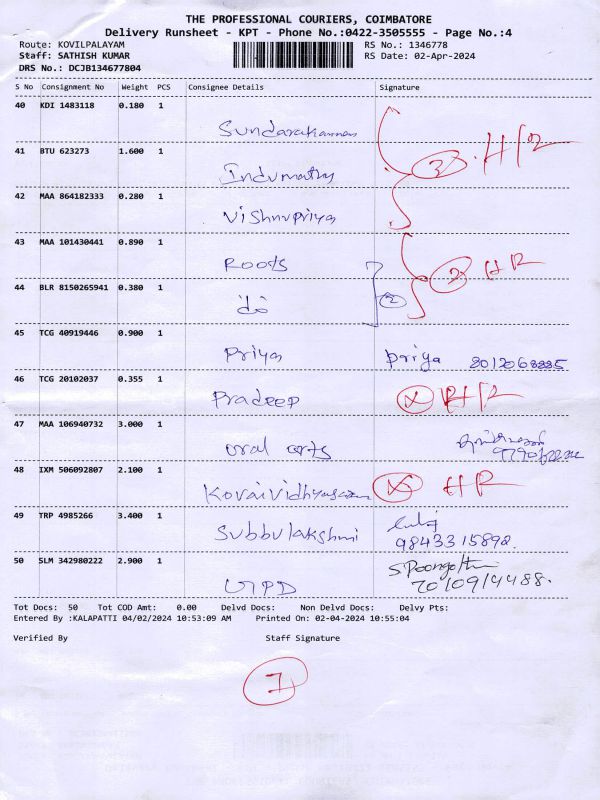 THE PROFESSIONAL COURIERS, COIMBATORE
Delivery Runsheet - KPT - Phone No.:0422-3505555 - Page No.:4
Route: KOVILPALAYAM RS No.: 1346778
Staff: SATHISH KUMAR RS Date: 02-Apr-2024
DRS No.: DCJB134677804
S No Consignment No Weight PCS Consignee Details Signature
40 KDI 1483118 0.180 1
Sundarakannan
41 BTU 623273 1.600 1
3 H/R
Indumathy
42 MAA 864182333 0.280 1
Vishnupriya
43 MAA 101430441 0.890 1
Roots
2 HR
44 BLR 8150265941 0.380 1
do 2
45 TCG 40919446 0.900 1
Priya priya
46 TCG 20102037 0.355 1
Pradeep H/R
47 MAA 106940732 3.000 1
oral arts
48 IXM 506092807 2.100 1
HR
49 TRP 4985266 3.400 1
Subbulakshmi 9843315898.
50 SLM 342980222 2.900 1
UTPD
Tot Docs: 50 Tot COD Amt: 0.00 Delvd Docs: Non Delvd Docs: Delvy Pts:
Entered By :KALAPATTI 04/02/2024 10:53:09 AM Printed On: 02-04-2024 10:55:04
Verified By Staff Signature
7